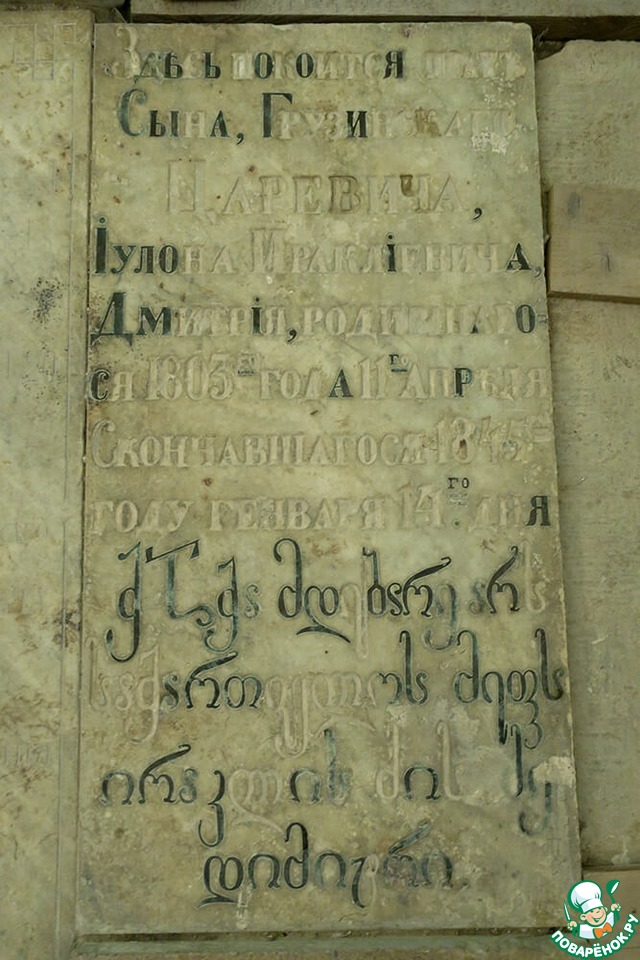 Здѣсь покоится прахъ
Сына, Грузинскаго
Царевича,
Іулона Ираклíевича,
Дмитрія, родившаго-
ся 1803го года 11го Апрѣля
Скончавшагося 1845го
году Генваря 14го дня
მდებარე არს
საქართველოს მეფის
ირაკლის ძის ძე
დიმიტრი.
ПОВАРЁНОК.РУ